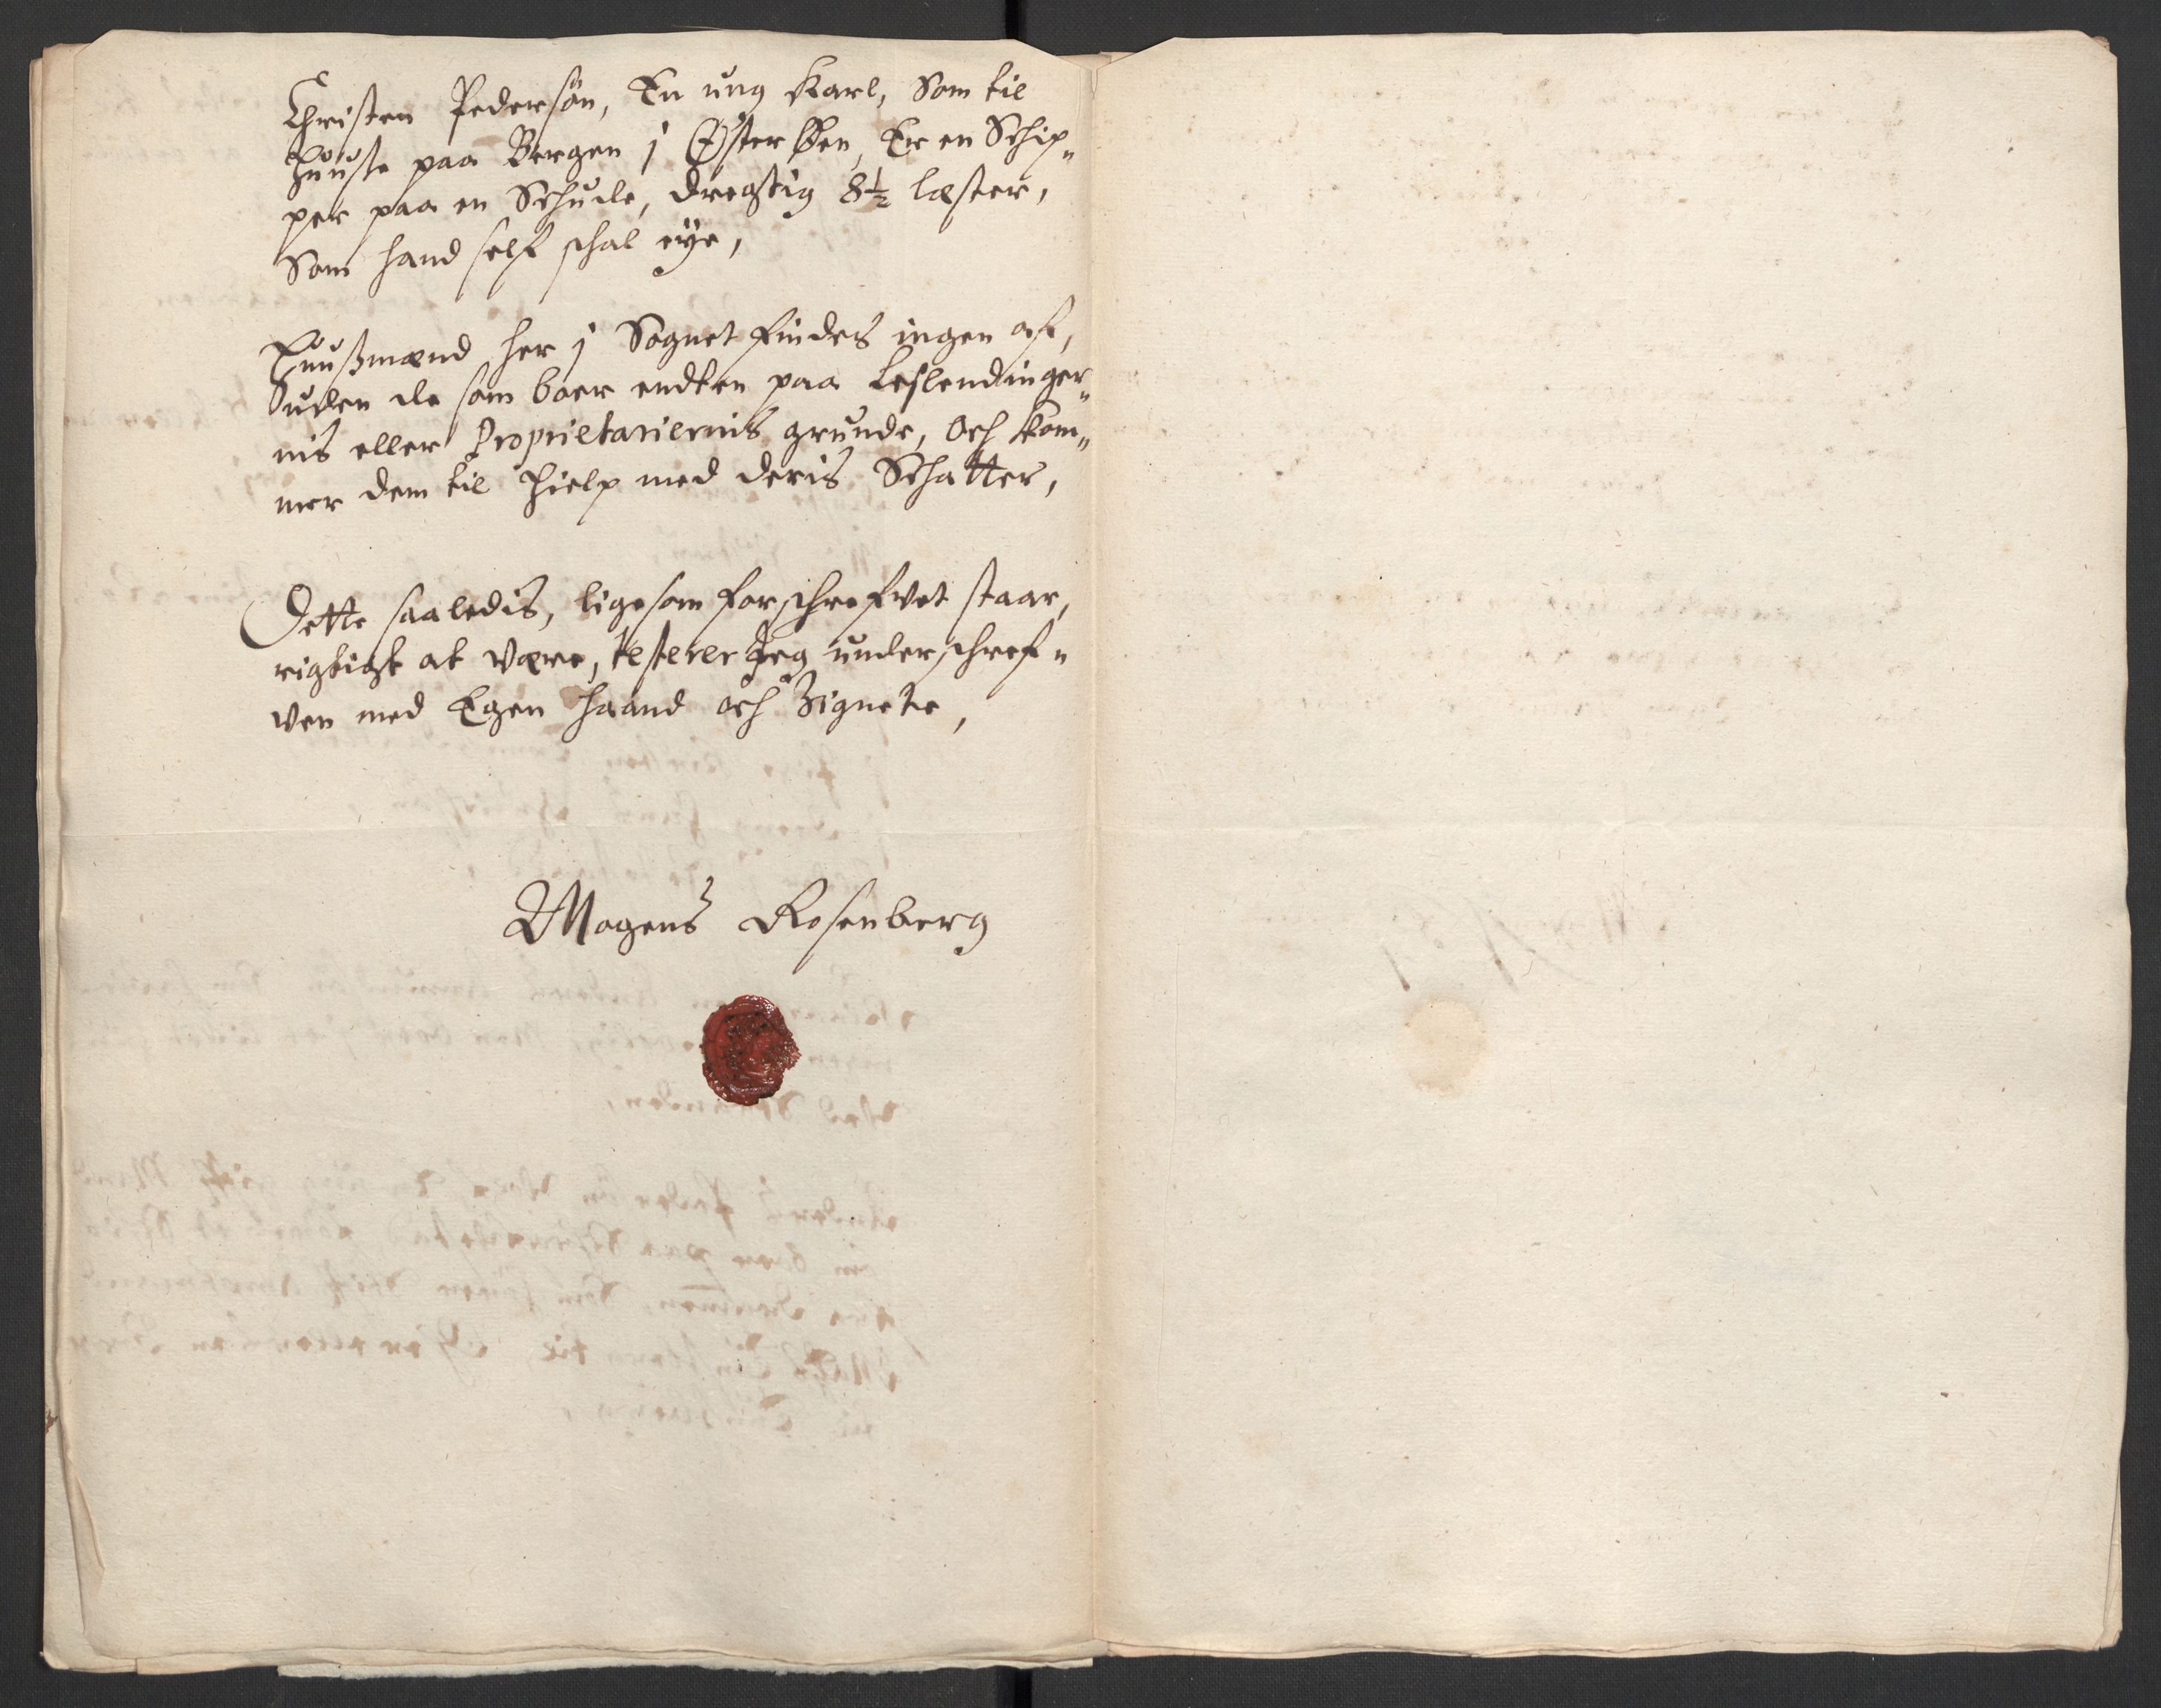 Christen Pedersøn, En ung Karl, Som til
Huuse paa Bergen j Østerssen, Er en Schip„
per paa en Schude, dregtig 8½ læster,
Som hand self schal eye,
Huußmænd her j Sognet findes ingen af,
Uden de som boer endten paa Leylendinger„
nis eller Proprietariernis grunde, Och kom„
mer dem til Hielp med deris Schatter,
Dette saaledis, ligesom forschrefvet staar,
rigtigt at være, testerer Jeg underschref„
ven med Egen Haand och Zignete,
Mogens Rosenberg